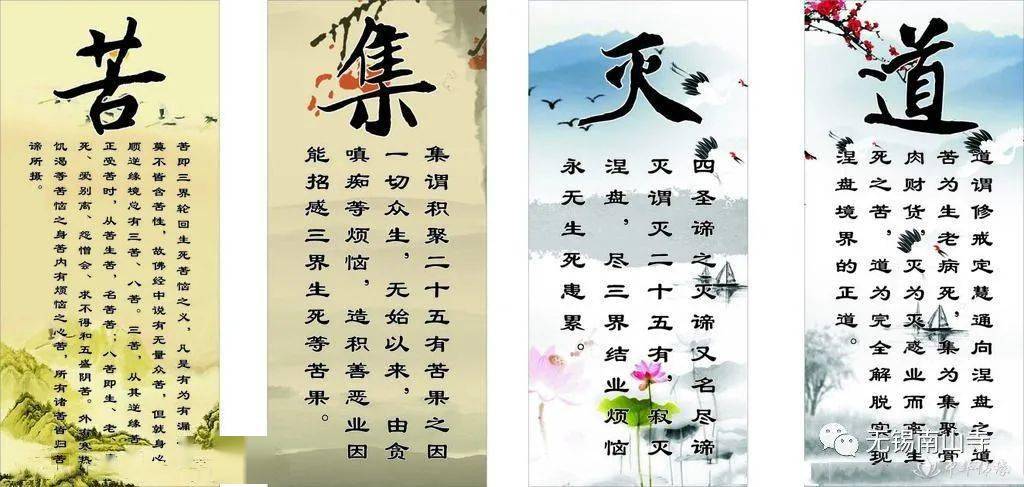 苦
苦即三界轮回生死苦恼之义，凡是有为有漏，
莫不皆含苦性，故佛经中说有无量众苦，但就身心
顺逆缘境总有三苦、八苦。三苦，从其逆缘苦
正受苦时，从苦生苦，名苦苦；八苦即生、老
死、爱别离、怨憎会、求不得和五盛阴苦。外有寒热
饥渴等苦恼之身苦内有烦恼之心苦，所有诸苦皆归苦
谛所摄。
集
集谓积聚二十五有苦果之因
一切众生，无始以来，由贪
嗔痴等烦恼，造积善恶业因
能招感三界生死等苦果。
灭
四圣谛之灭谛又名尽谛
灭谓灭二十五有，寂灭
涅盘，尽三界结业烦恼
永无生死患累。
道
道谓修戒定慧通向涅盘之道
苦为生老病死，集为集聚骨
肉财货，灭为灭惑业而离生
死之苦，道为完全解脱实现
涅盘境界的正道。
无锡南山寺